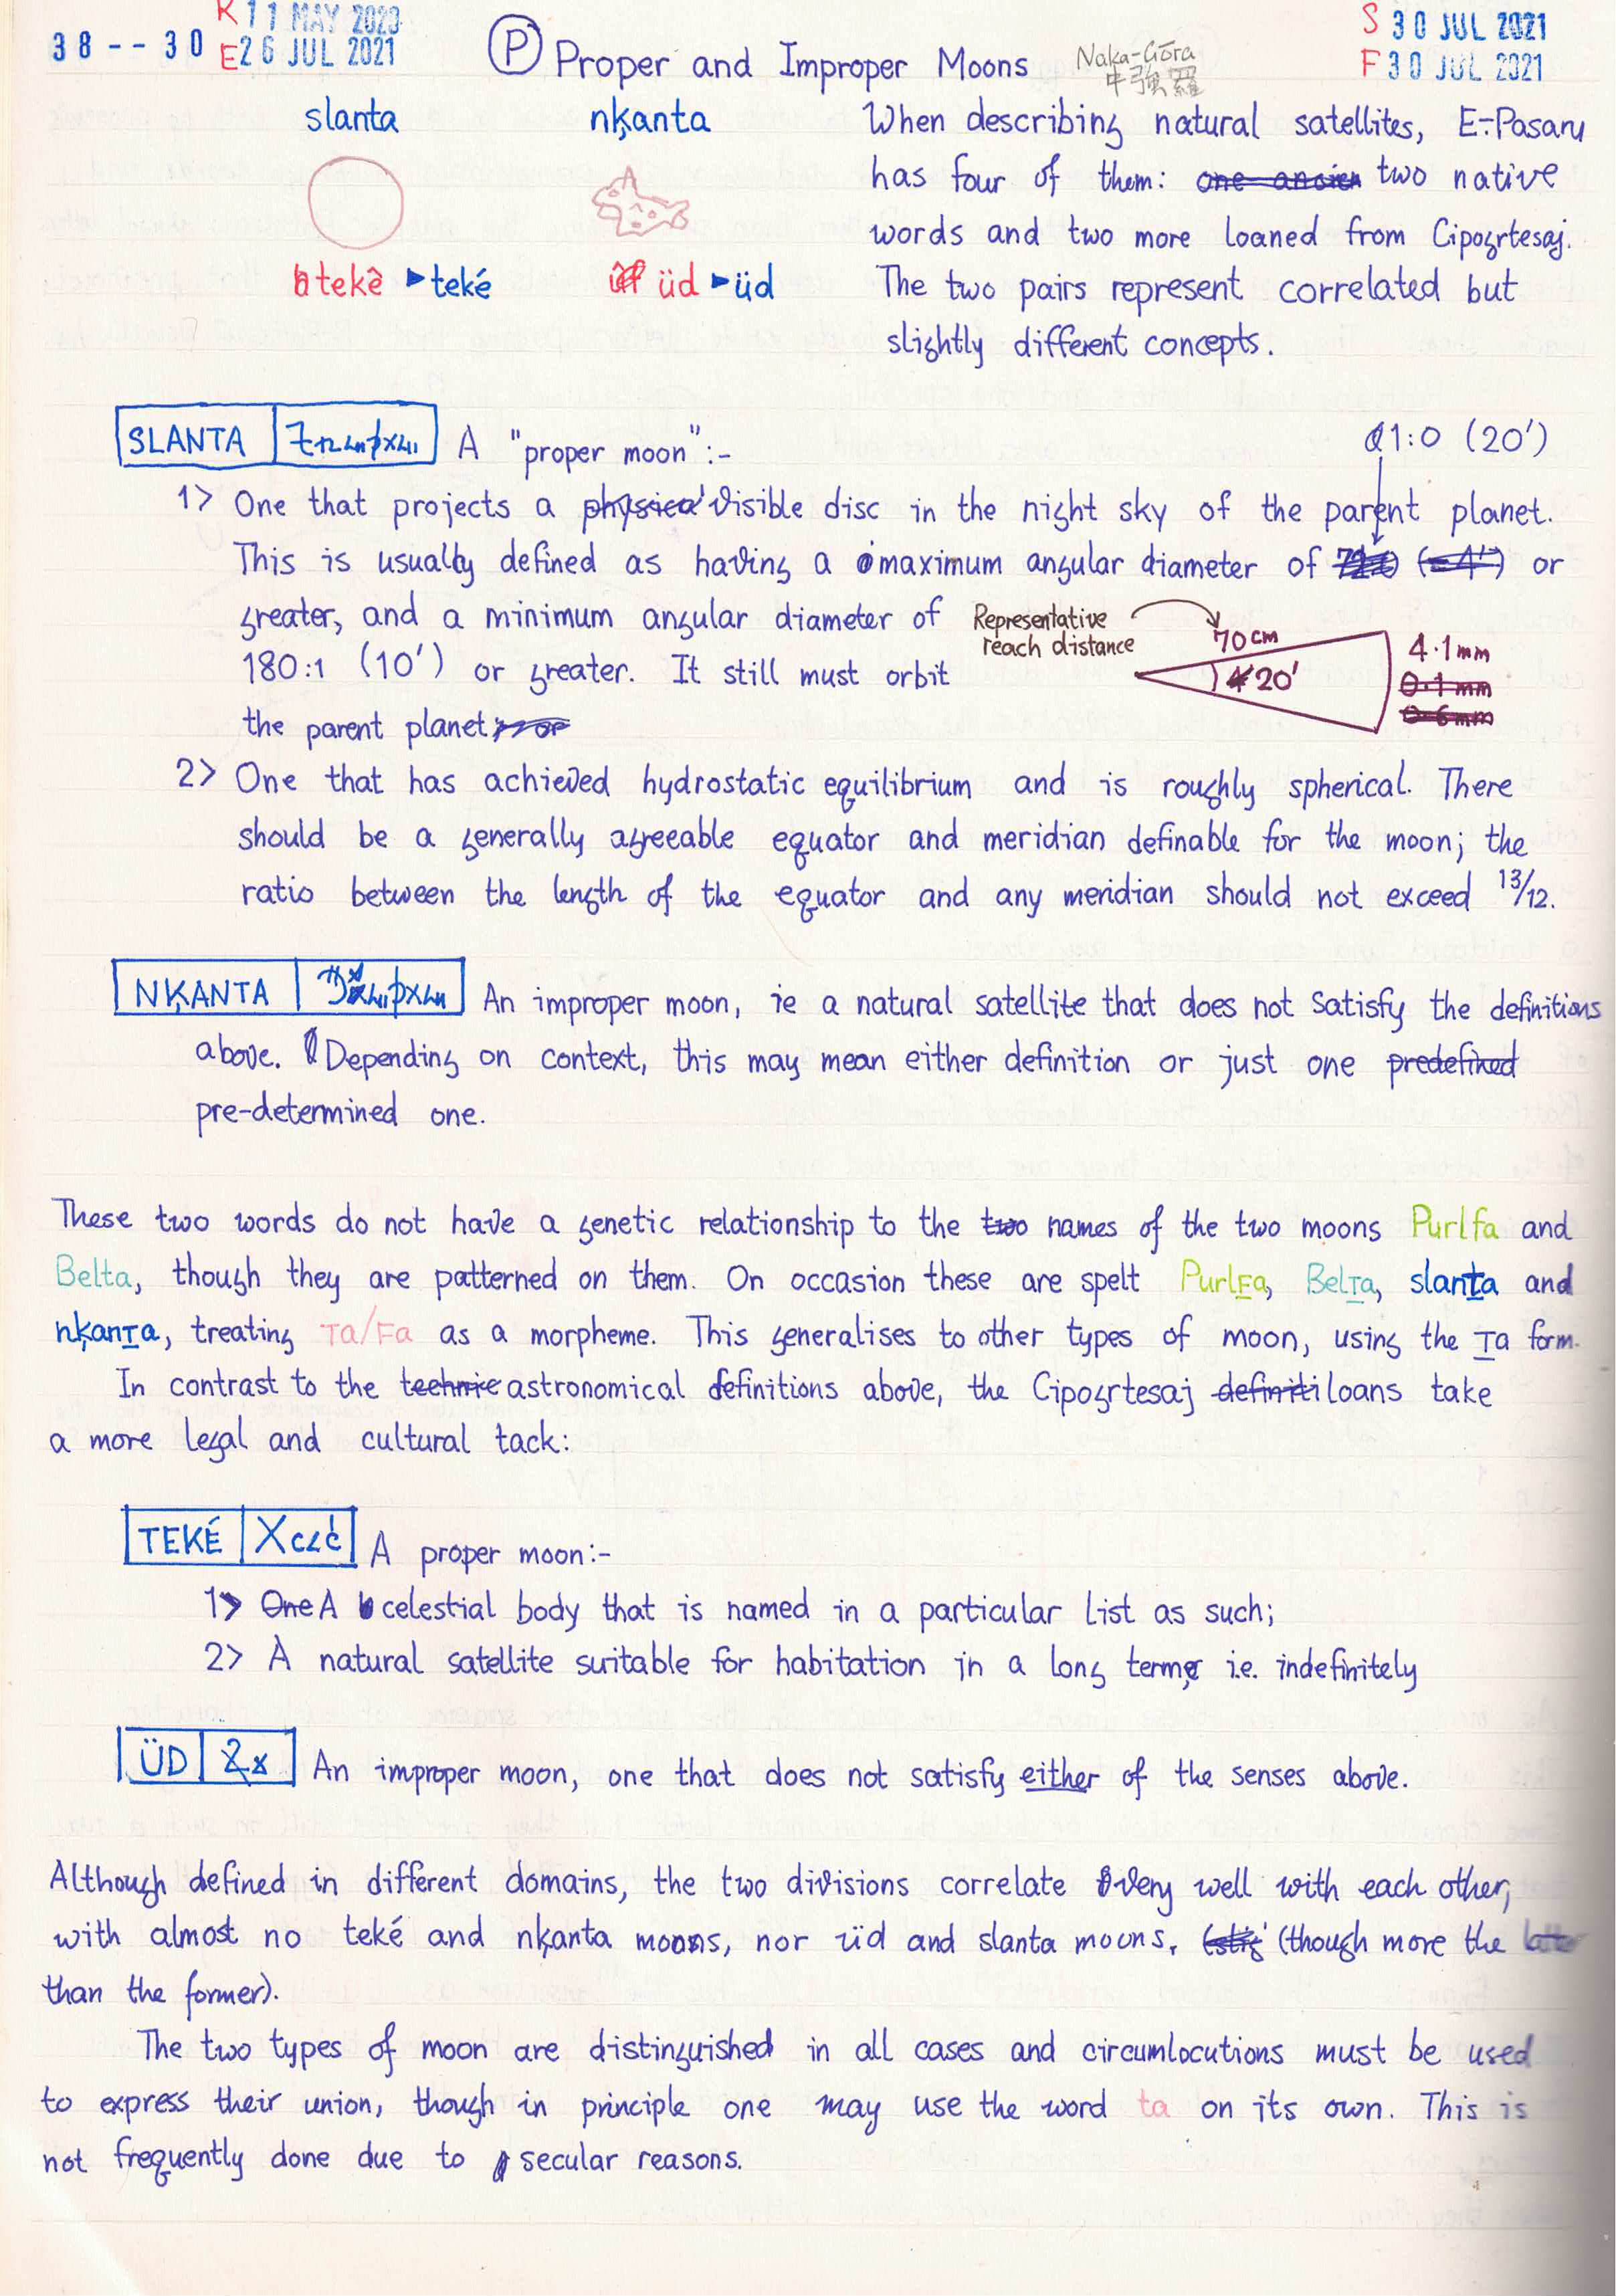 38 -- 30
R 11 MAY 2023
E 26 JUL 2021
Ⓟ Proper and Improper Moons
Naka-Gōra
中強羅
S 30 JUL 2021
F 30 JUL 2021
slanta
nķanta
tekê ▸ teké
üd ▸ üd
When describing natural satellites, E-Pasaru
has four of them: one ancien two native
words and two more loaned from Cipogrtesaj.
The two pairs represent correlated but
slightly different concepts.
SLANTA
A "proper moon":-
1:0 (20')
1> One that projects a physical visible disc in the night sky of the parent planet.
This is usually defined as having a maximum angular diameter of (=4') or
greater, and a minimum angular diameter of
180:1 (10') or greater. It still must orbit
the parent planet; or
Representative
reach distance
70 cm
20'
4.1mm
0.1mm
0.6mm
2> One that has achieved hydrostatic equilibrium and is roughly spherical. There
should be a generally agreeable equator and meridian definable for the moon; the
ratio between the length of the equator and any meridian should not exceed 13/12.
NĶANTA
An improper moon, ie a natural satellite that does not satisfy the definitions
above. Depending on context, this may mean either definition or just one predefined
pre-determined one.
These two words do not have a genetic relationship to the two names of the two moons Purlfa and
Belta, though they are patterned on them. On occasion these are spelt PurlFa, BelTa, slanta and
nķanTa, treating Ta/Fa as a morpheme. This generalises to other types of moon, using the Ta form.
In contrast to the technic astronomical definitions above, the Cipogrtesaj definiti loans take
a more legal and cultural tack:
TEKÉ
A proper moon:-
1> One A celestial body that is named in a particular list as such;
2> A natural satellite suitable for habitation in a long term, i.e. indefinitely
ÜD
An improper moon, one that does not satisfy either of the senses above.
Although defined in different domains, the two divisions correlate very well with each other,
with almost no teké and nķanta moons, nor üd and slanta moons. (though more the latter
than the former).
The two types of moon are distinguished in all cases and circumlocutions must be used
to express their union, though in principle one may use the word ta on its own. This is
not frequently done due to secular reasons.